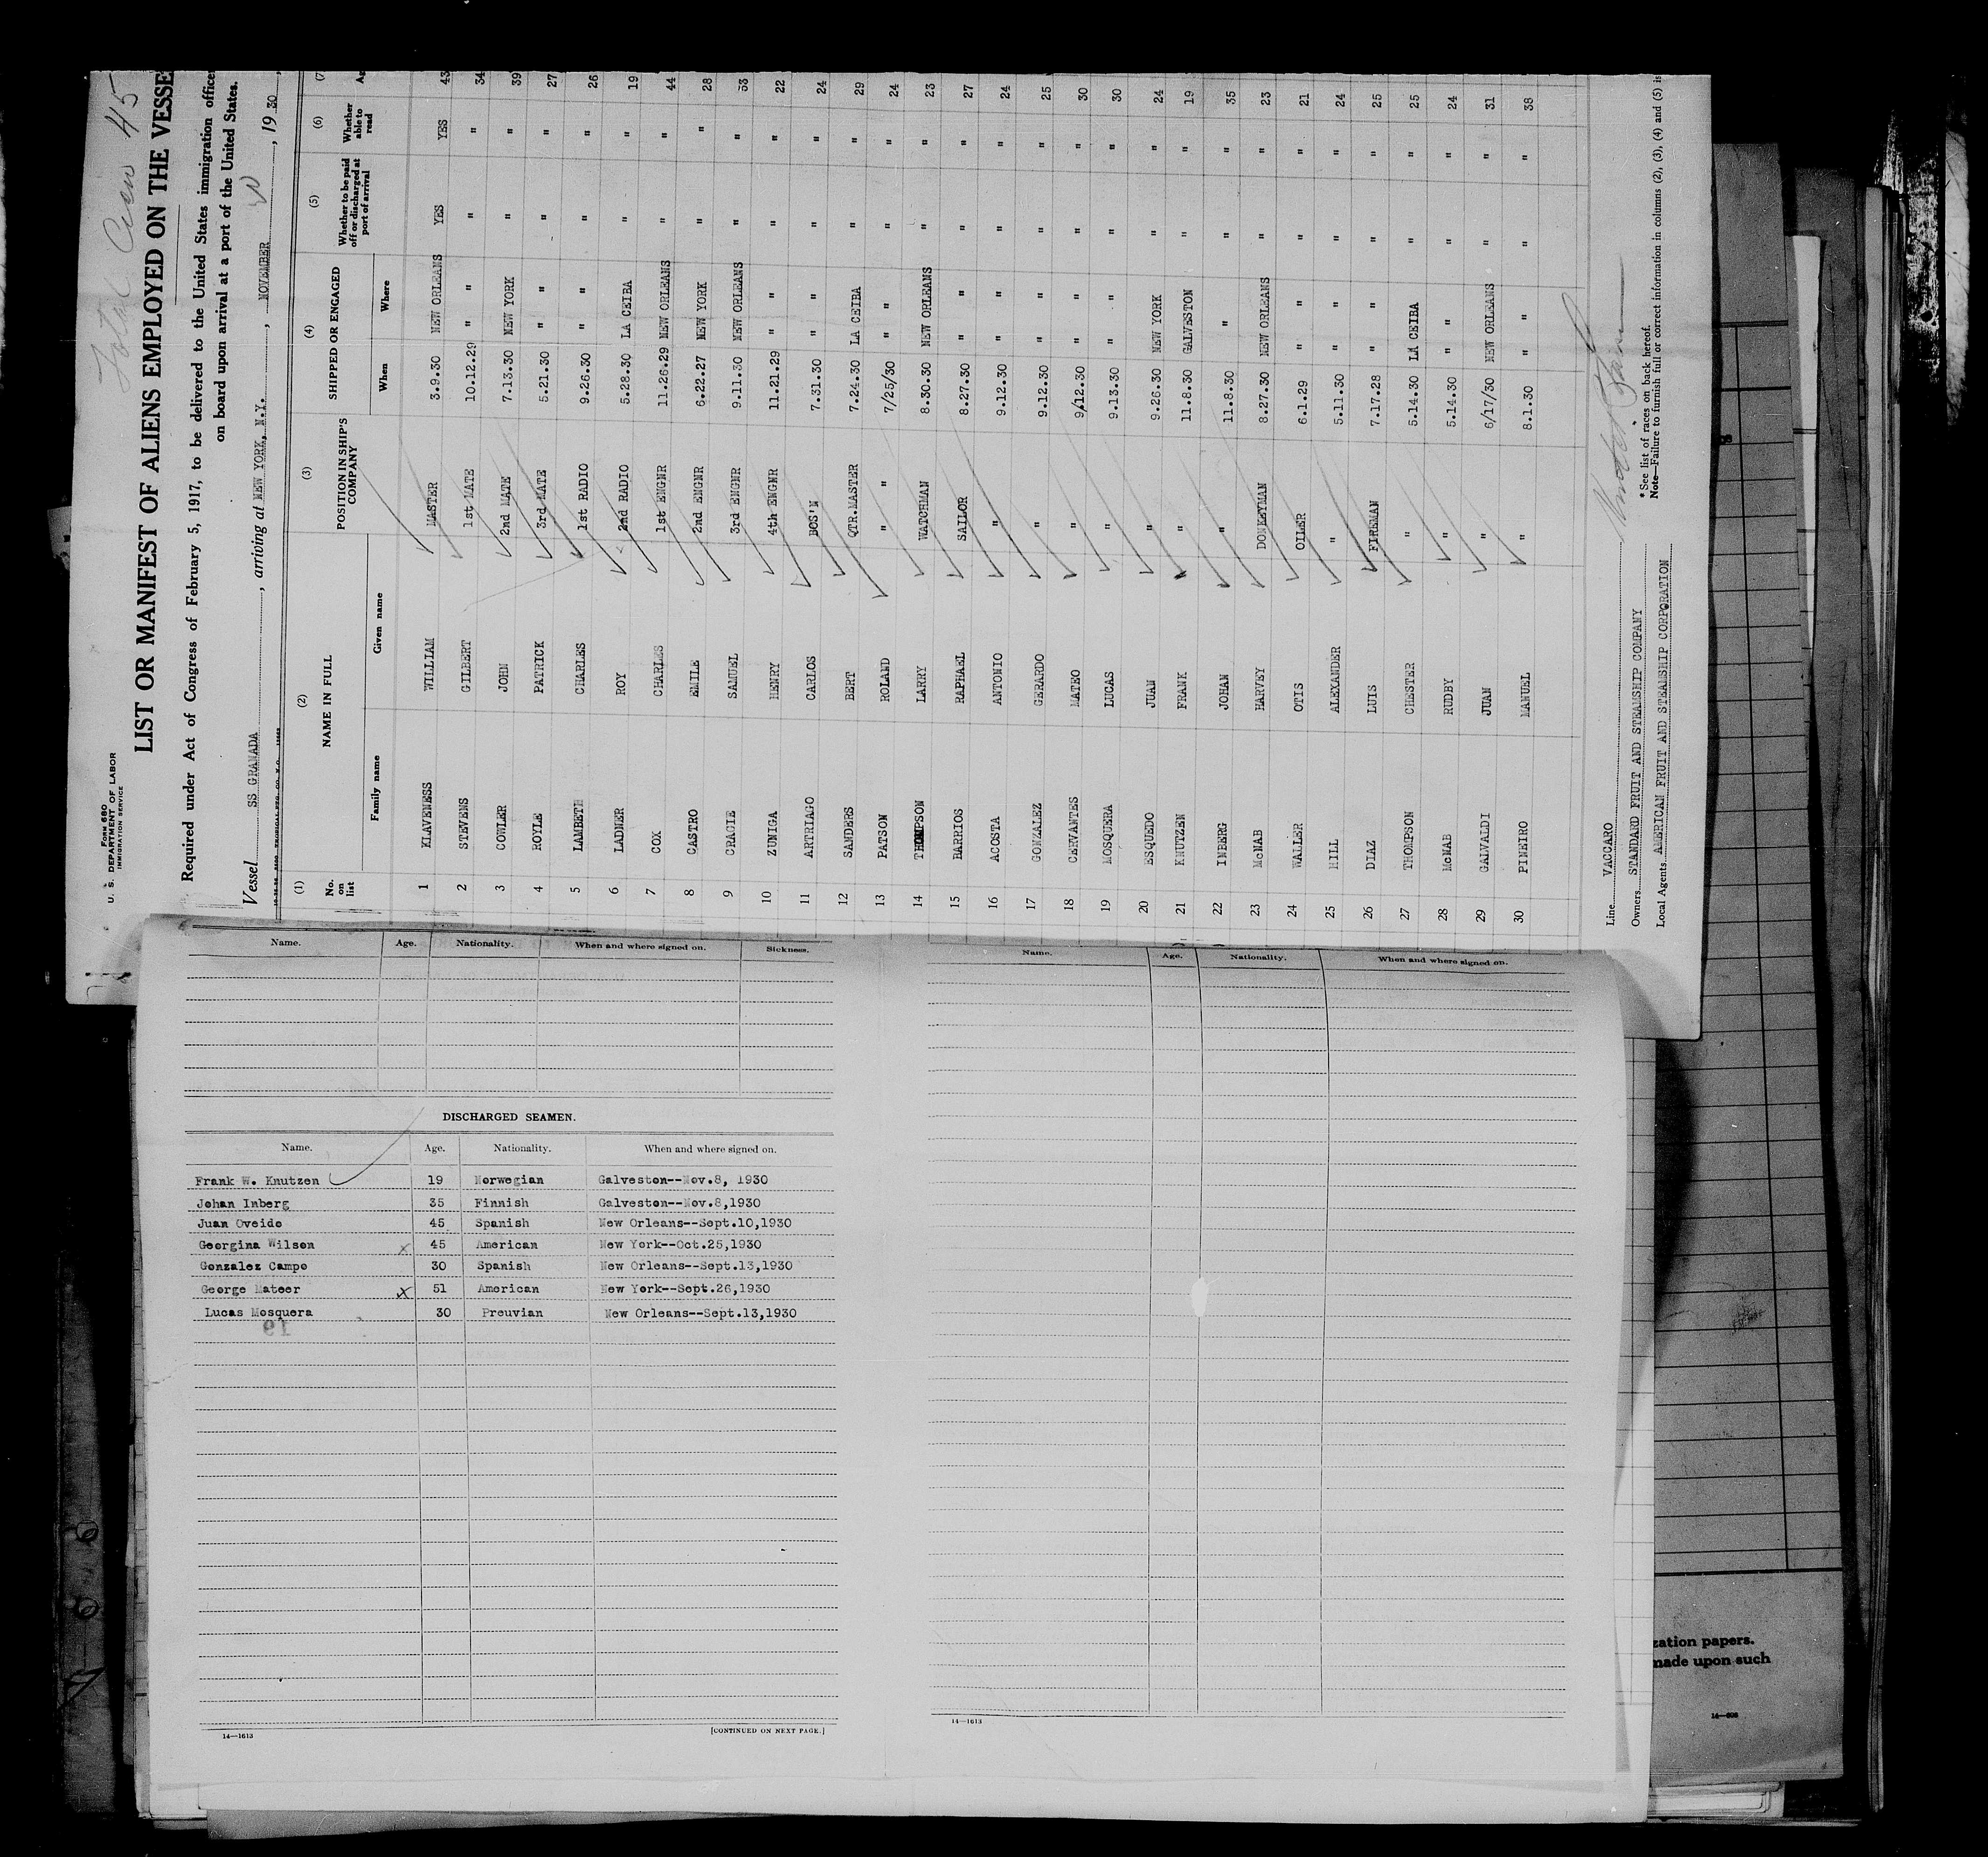 Total Crew 45
FORM 680
U. S. DEPARTMENT OF LABOR
IMMIGRATION SERVICE
LIST OR MANIFEST OF ALIENS EMPLOYED ON THE VESSE
Required under Act of Congress of February 5, 1917, to be delivered to the United States immigration office
on board upon arrival at a port of the United States.
Vessel SS GRANADA, arriving at NEW YORK, N.Y., NOVEMBER, 1930
(1) (2) (3) (4) (5) (6) (7
No. on list NAME IN FULL POSITION IN SHIP'S COMPANY SHIPPED OR ENGAGED Whether to be paid off or discharged at port of arrival Whether able to read Ag
Family name Given name When Where
1 KLAVENESS WILLIAM MASTER 3.9.30 NEW ORLEANS YES YES 43
2 STEVENS GILBERT 1st MATE 10.12.29 " " " " 34
3 COWLER JOHN 2nd MATE 7.13.30 NEW YORK " " 39
4 ROYLE PATRICK 3rd MATE 5.21.30 " " " " 27
5 LAMBETH CHARLES 1st RADIO 9.26.30 " " " " 26
6 LADNER ROY 2nd RADIO 5.28.30 LA CEIBA " " 19
7 COX CHARLES 1st ENGNR 11.26.29 NEW ORLEANS " " 44
8 CASTRO EMILE 2nd ENGNR 6.22.27 NEW YORK " " 28
9 CRAGIE SAMUEL 3rd ENGNR 9.11.30 NEW ORLEANS " " 53
10 ZUNIGA HENRY 4th ENGNR 11.21.29 " " " " 22
11 ARTRIAGO CARLOS BOS'N 7.31.30 " " " " 24
12 SANDERS BERT QTR.MASTER 7.24.30 LA CEIBA " " 29
13 PATSON ROLAND " " 7/25/30 " " " " 24
14 THOMPSON LARRY WATCHMAN 8.30.30 NEW ORLEANS " " 23
15 BARRIOS RAPHAEL SAILOR 8.27.30 " " " " 27
16 ACOSTA ANTONIO " 9.12.30 " " " " 24
17 GONZALEZ GERARDO " 9.12.30 " " " " 25
18 CERVANTES MATEO " 9.12.30 " " " " 30
19 MOSQUERA LUCAS " 9.13.30 " " " " 30
20 ESQUEDO JUAN " 9.26.30 NEW YORK " " 24
21 KNUTZEN FRANK " 11.8.30 GALVESTON " " 19
22 INBERG JOHAN " 11.8.30 " " " 35
23 McNAB HARVEY DONKEYMAN 8.27.30 NEW ORLEANS " " 23
24 WALLER OTIS OILER 6.1.29 " " " " 21
25 HILL ALEXANDER " 5.11.30 " " " " 24
26 DIAZ LUIS FIREMAN 7.17.28 " " " " 25
27 THOMPSON CHESTER " 5.14.30 LA CEIBA " " 25
28 McNAB RUDBY " 5.14.30 " " " " 24
29 GALVALDI JUAN " 6/17/30 NEW ORLEANS " " 31
30 PINEIRO MANUEL " 8.1.30 " " " " 38
Line VACCARO
Owners STANDARD FRUIT AND STEAMSHIP COMPANY
Local Agents AMERICAN FRUIT AND STEAMSHIP CORPORATION
* See list of races on back hereof.
Note—Failure to furnish full or correct information in columns (2), (3), (4) and (5) is
Name. Age. Nationality. When and where signed on. Sickness.
DISCHARGED SEAMEN.
Name. Age. Nationality. When and where signed on.
Frank W. Knutzen 19 Norwegian Galveston--Nov.8, 1930
Johan Inberg 35 Finnish Galveston--Nov.8,1930
Juan Oveido 45 Spanish New Orleans--Sept.10,1930
Georgina Wilson x 45 American New York--Oct.25,1930
Gonzalez Campo 30 Spanish New Orleans--Sept.13,1930
George Mateer x 51 American New York--Sept.26,1930
Lucas Mosquera 30 Preuvian New Orleans--Sept.13,1930
14—1613
[CONTINUED ON NEXT PAGE.]
Name. Age. Nationality. When and where signed on.
14—1613
zation papers.
made upon such